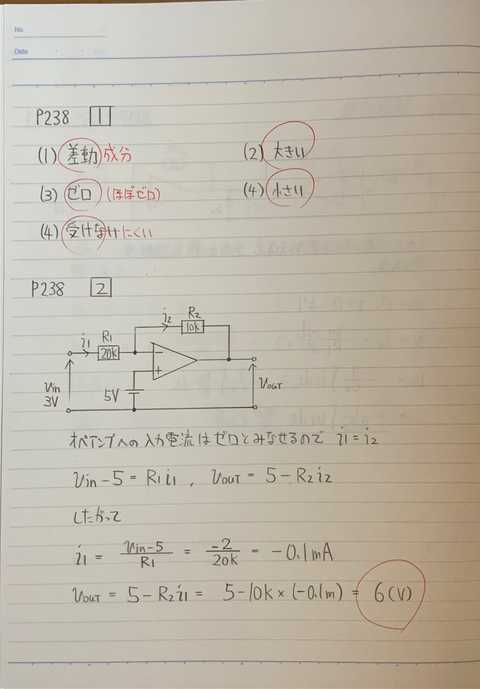 No.
Date
P238 1
(1) 差動成分 (2) 大きい
(3) ゼロ (ほぼゼロ) (4) 小さい
(4) 受けなけにくい
P238 2
i2 R2
10k
i1 R1
20k
Vin
3V
5V
VOUT
オペアンプへの入力電流はゼロとみなせるので i1 = i2
Vin-5 = R1 i1 , VOUT = 5-R2 i2
したがって
i1 = Vin-5 / R1 = -2 / 20k = -0.1mA
VOUT = 5-R2 i1 = 5-10k×(-0.1m) = 6(V)